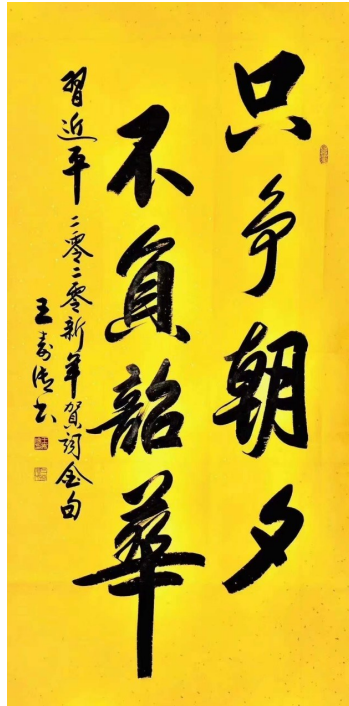 只争朝夕
不負韶華
習近平二零二零新年賀詞金句
王壽清书